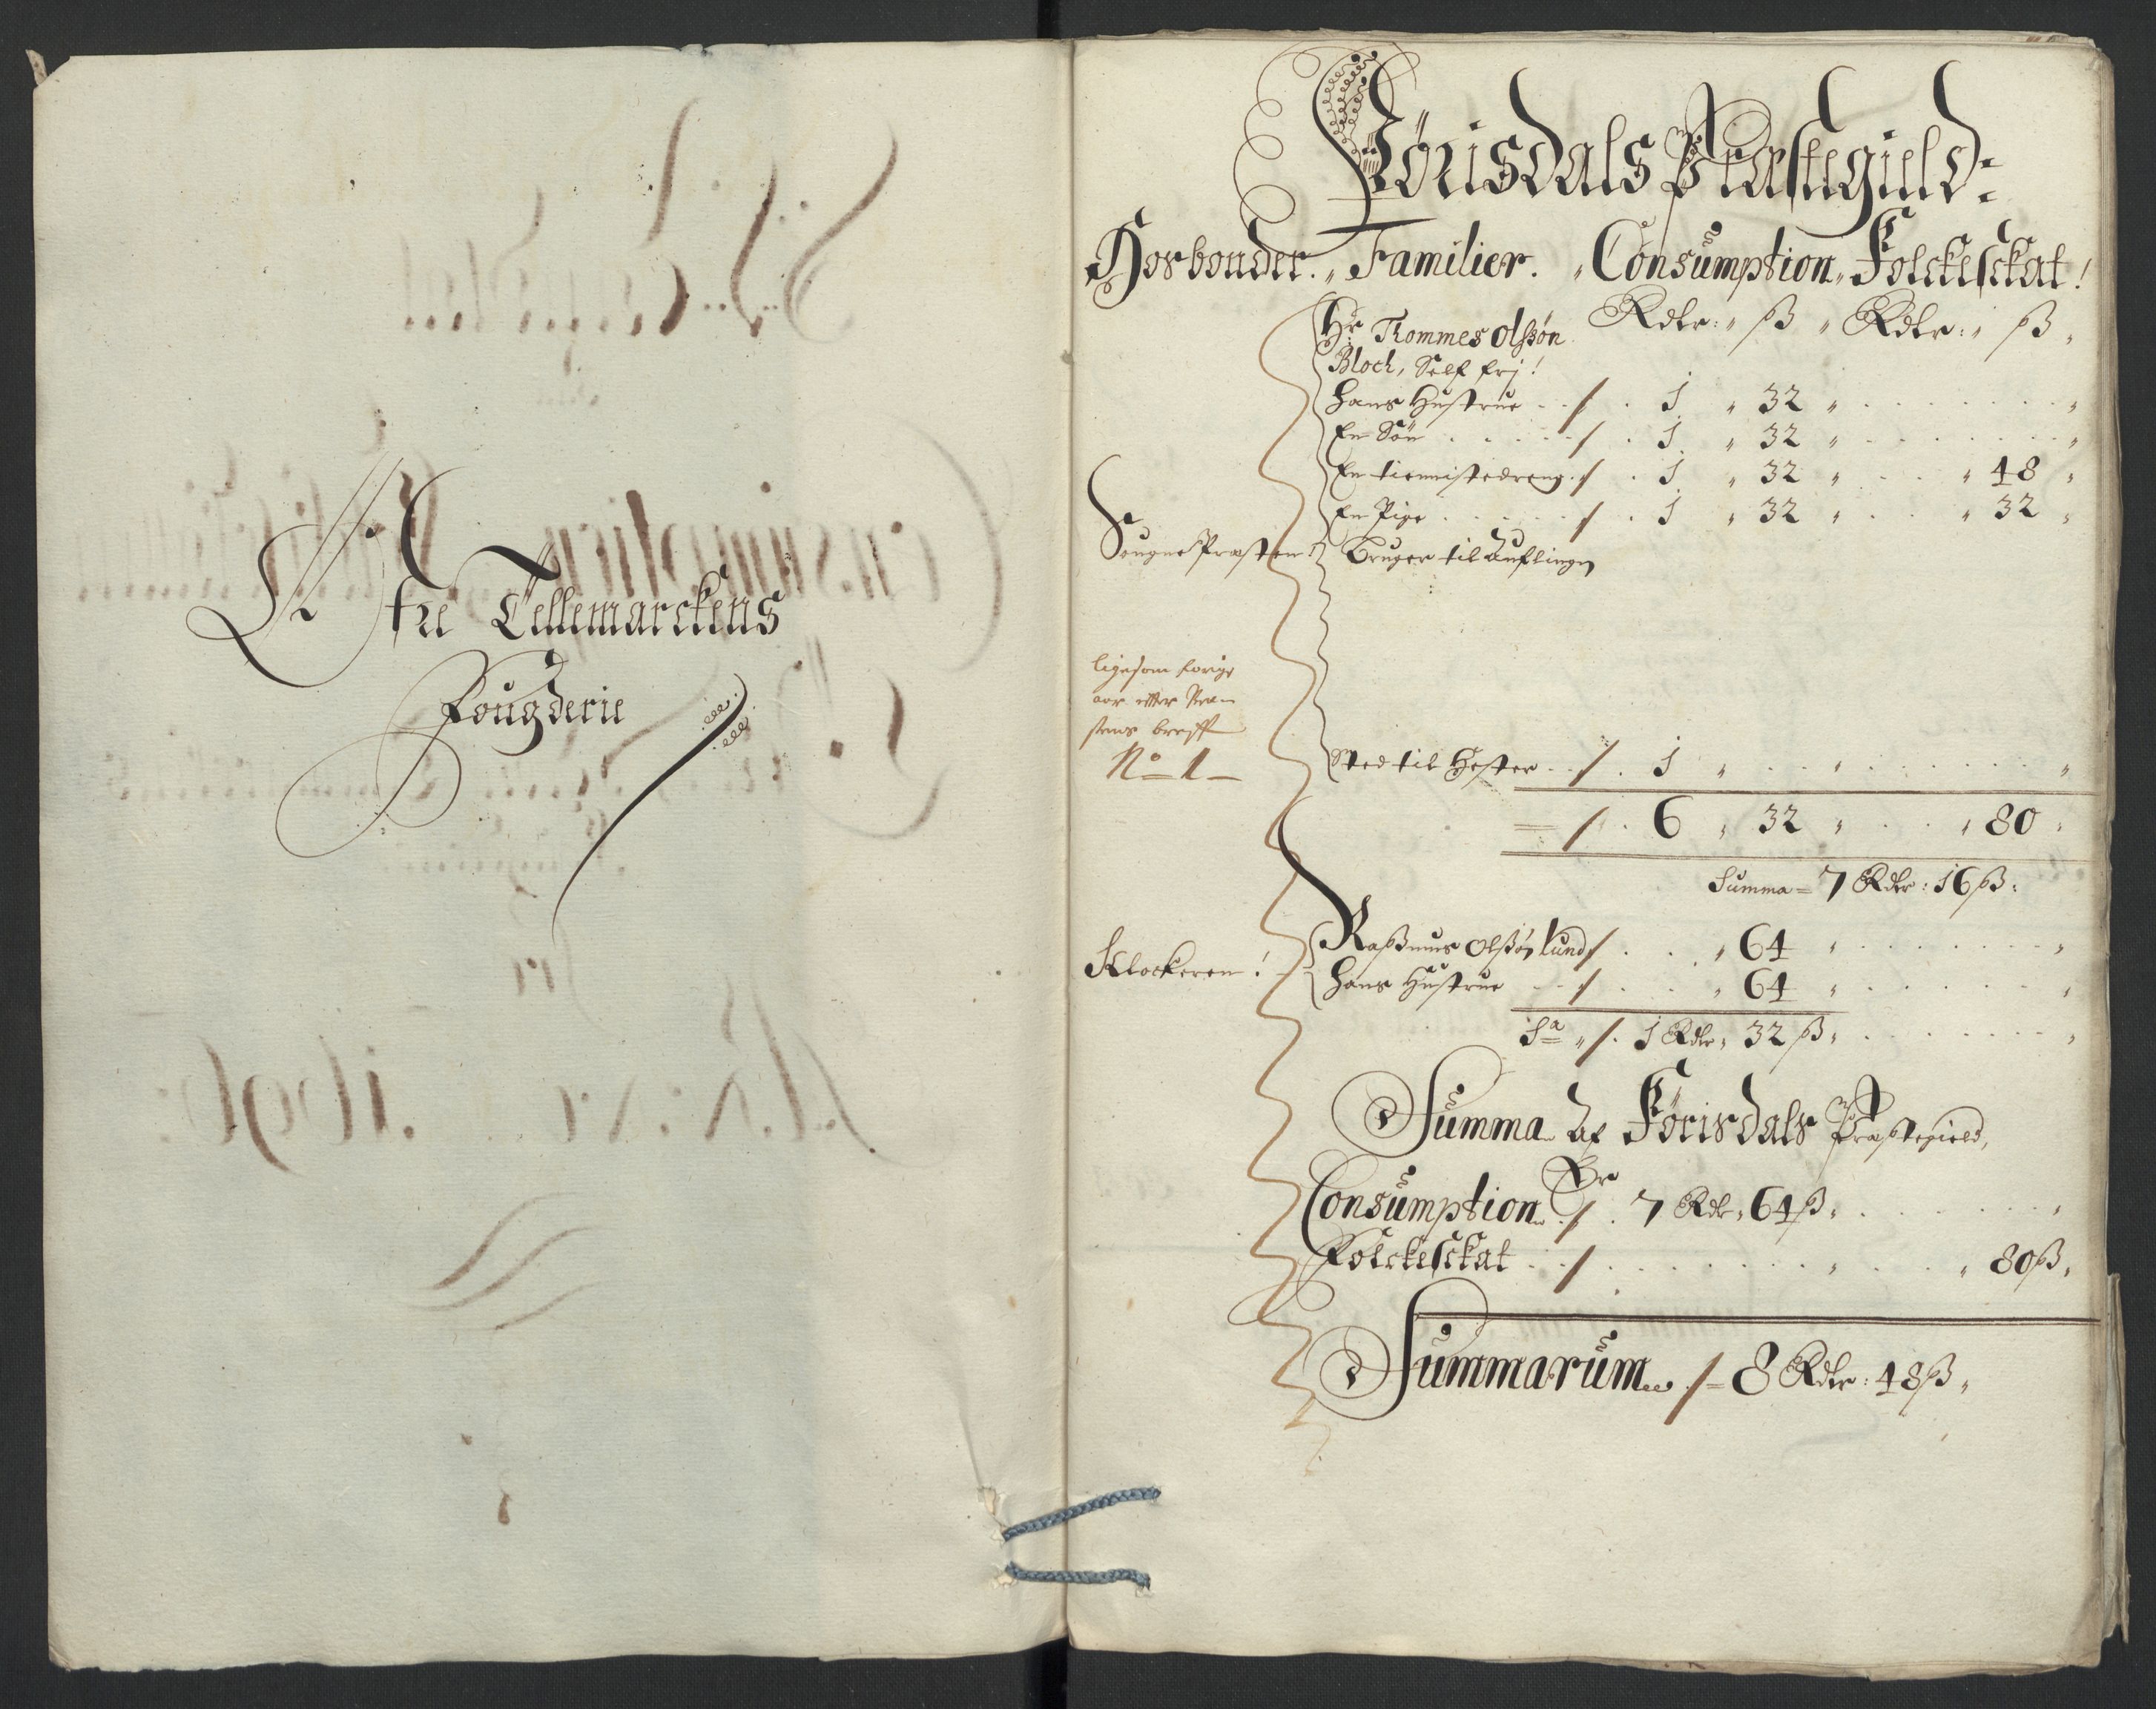 Øfre Tellemarckens
Fougderie
Förisdals Præstegield:
Hosbonder. „ Familier. „ Consumption „ Folckeskat!
Rdlr: „ ß „ Rdlr: „ ß „
Hr: Thommes Olßøn
Bloch, Self frj!
Hans Hustrue . . / . 1 „ 32 „
En Søn . . . . / . 1 „ 32 „
En tiennistedreng . / . 1 „ 32 „ . . „ 48 „
En Pige . . . . / . 1 „ 32 „ . . „ 32 „
Sougne Præsten!
Bruger til aufling
ligesom forige
aar efter Præ-
stens breff
No 1
Sted til Hester . . / . 1 „
/ . 6 „ 32 „ . . „ 80 „
Summa = 7 Rdlr: 16 ß:
Klockeren!
Raßmus Olßøn Lund / . . . „ 64 „
Hans Hustrue . . / . . . „ 64 „
Sa „ / . 1 Rdlr „ 32 ß „
Summa af Förisdals Præstegield,
Er
Consumption . / . 7 Rdlr „ 64 ß „
Folckeskat . . / . . . . „ 80 ß „
Summarum . / = 8 Rdlr: 48 ß „